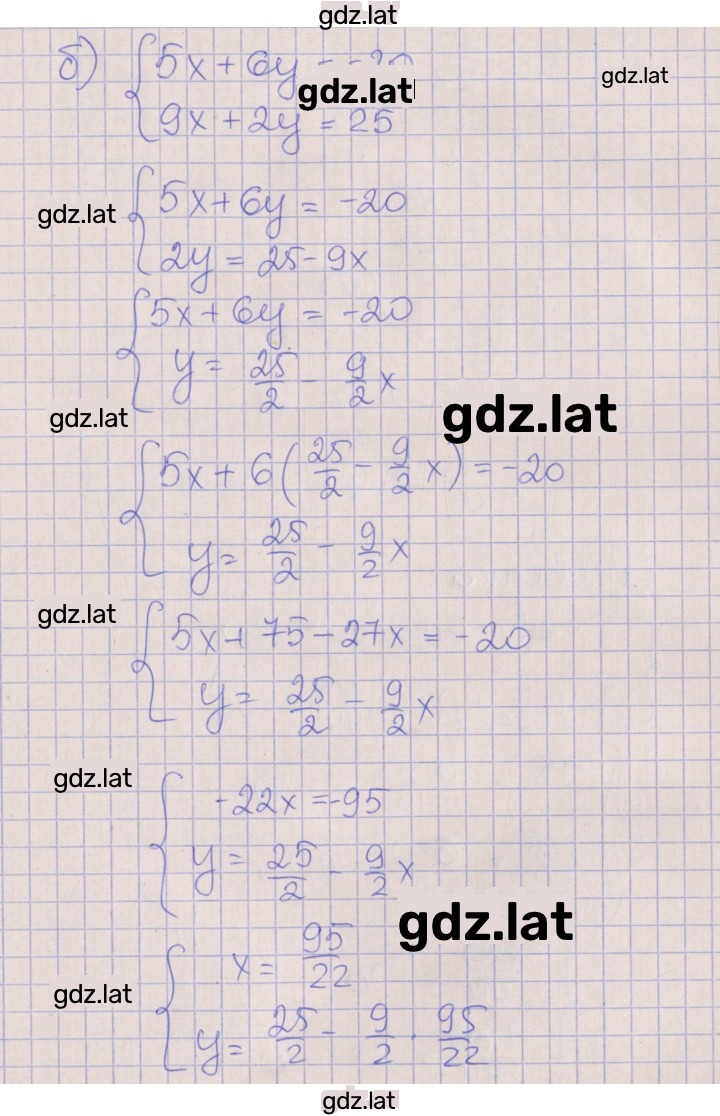 gdz.lat
б) { 5x + 6y = -20
gdz.lat
gdz.lat
9x + 2y = 25
{ 5x + 6y = -20
gdz.lat
2y = 25 - 9x
{ 5x + 6y = -20
y = 25/2 - 9/2 x
gdz.lat
gdz.lat
{ 5x + 6(25/2 - 9/2 x) = -20
y = 25/2 - 9/2 x
gdz.lat
{ 5x + 75 - 27x = -20
y = 25/2 - 9/2 x
gdz.lat
{ -22x = -95
y = 25/2 - 9/2 x
gdz.lat
{ x = 95/22
gdz.lat
y = 25/2 - 9/2 · 95/22
gdz.lat